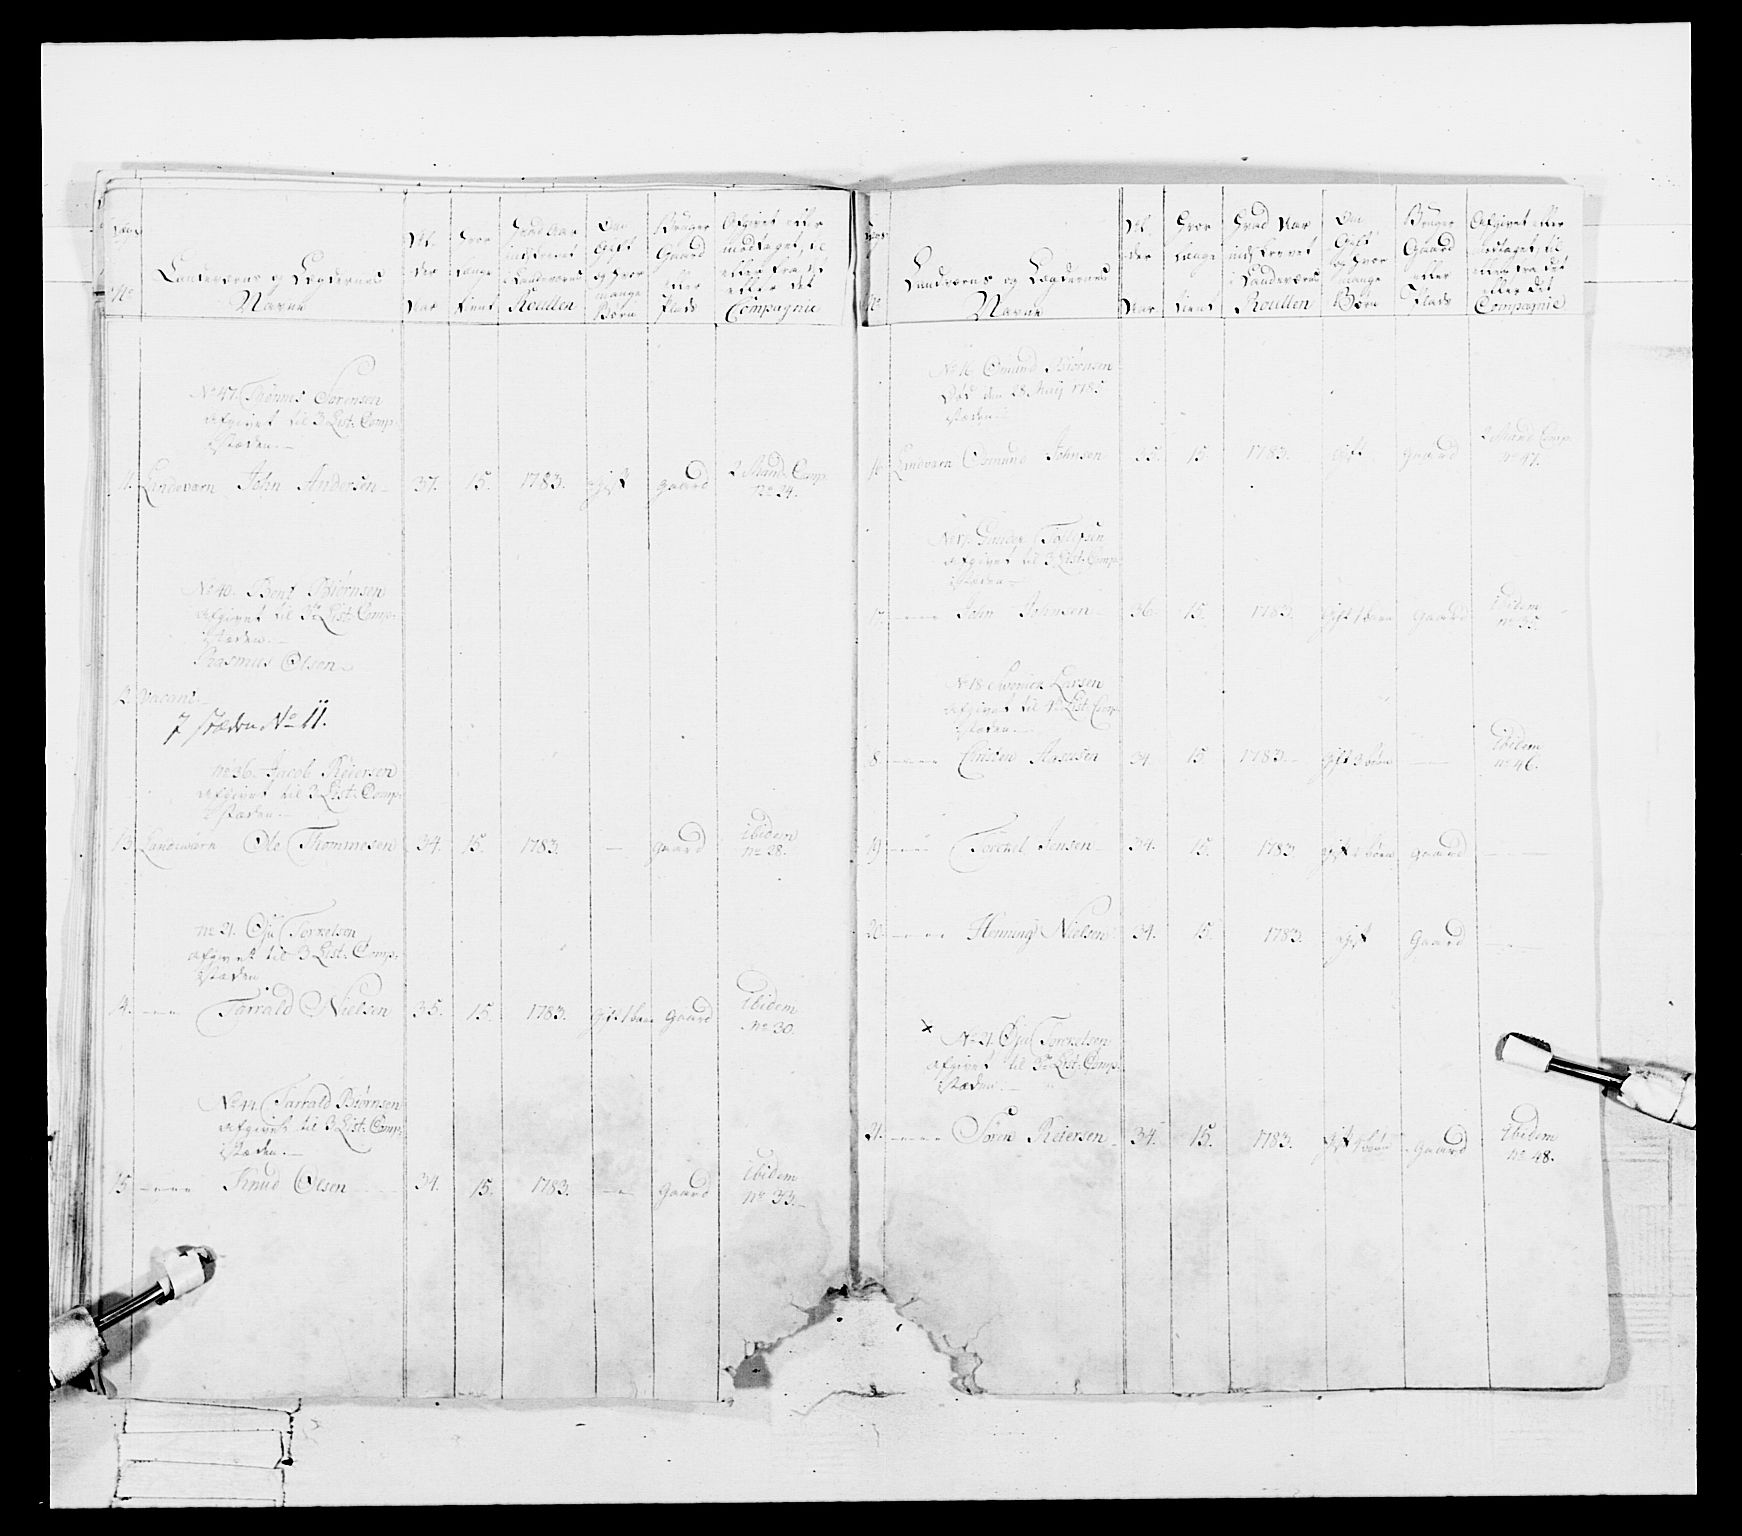 No
Landeværns og Lægdernes
Navne
Al-
der
Aar
Hvor
længe
tient
Hvad Aar
indskrevet
i Landeværns
Roullen
Om
Gift
og hvor
mange
Børn
Bruger
Gaard
eller
Plads
Afgivet eller
modtaget, til
eller fra, det
eller det
Compagnie
No 47. Thønnes Sørensen
afgivet til 3 List: Comp:
istæden.-
11. Landeværn John Andersen 37. 15. 1783. Gift gaard 2 Mand: Comp:
No 24.
No 40. Bent Biørnsen
afgivet til 3de List: Comp:
istæden.-
Rasmus Olsen
12 Vacant.
J stæden No 11.
No 36. Jacob Reiersen
afgivet til 3 List: Comp:
istæden.-
13. Landeværn Ole Thommesen 34. 15. 1783. — gaard ibidem
No 28.
No 21. Gju Torkelsen
afgivet til 3 List: Comp:
istæden
14. ---- Torrald Nielsen 35. 15. 1783. Gift 1 barn Gaard ibidem
No 30.
No 44. Tarrald Biørnsen
afgivet til 3 List: Comp:
istæden.-
15 ---- Knud Olsen 34. 15. 1783. — gaard ibidem
No 33.
No
Landværns og Lægdernes
Navne
Al-
der
Aar
Hvor
længe
tient
Hvad Aar
indskrevet
i Landeværns
Roullen
Om
Gift
og hvor
mange
Børn
Bruger
Gaard
eller
Plads
Afgivet eller
modtaget til
eller fra det
eller det
Compagnie
No 16 Omund Biørnsen
Død den 28 Maij 1785
istæden
16 Landværn Osmund Johnsen 35. 15. 1783. Gift gaard 2 Mand Comp:
No 47.
No 17. Gunder Tollefsen
afgivet til 3 List: Comp:
istæden
17. ---- John Johnsen 36. 15. 1783. Gift 1 barn Gaard ibidem
No 35.
No 18 Larsen
afgivet til List: Comp:
istæden
8 ---- Christen Aasusen 34. 15. 1783. Gift 3 børn — ibidem
No 46.
19 ---- Torckel Jensen 34. 15. 1783. Gift børn gaard ---
20. ---- Henning Nielsen 34. 15. 1783. Gift Gaard ---
x No 21. Gju Torckelsen
afgivet til 3de List: Comp:
istæden.-
21. ---- Søren Reiersen 34. 15. 1783. Gift 1 barn Gaard ibidem
No 48.